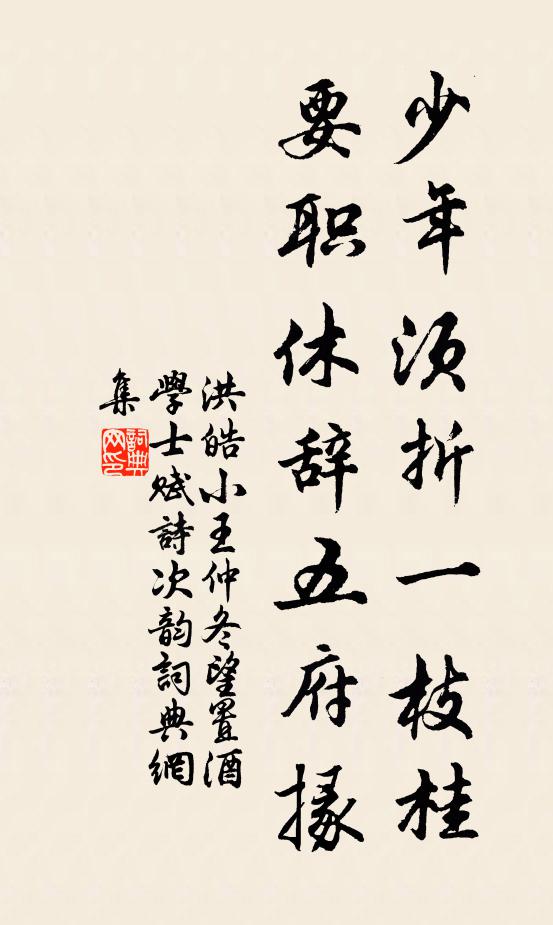 少年须折一枝桂
要职休辞五府掾
洪皓小王仲冬望置酒
學士赋詩次韵詞典網
集
詞典
网印